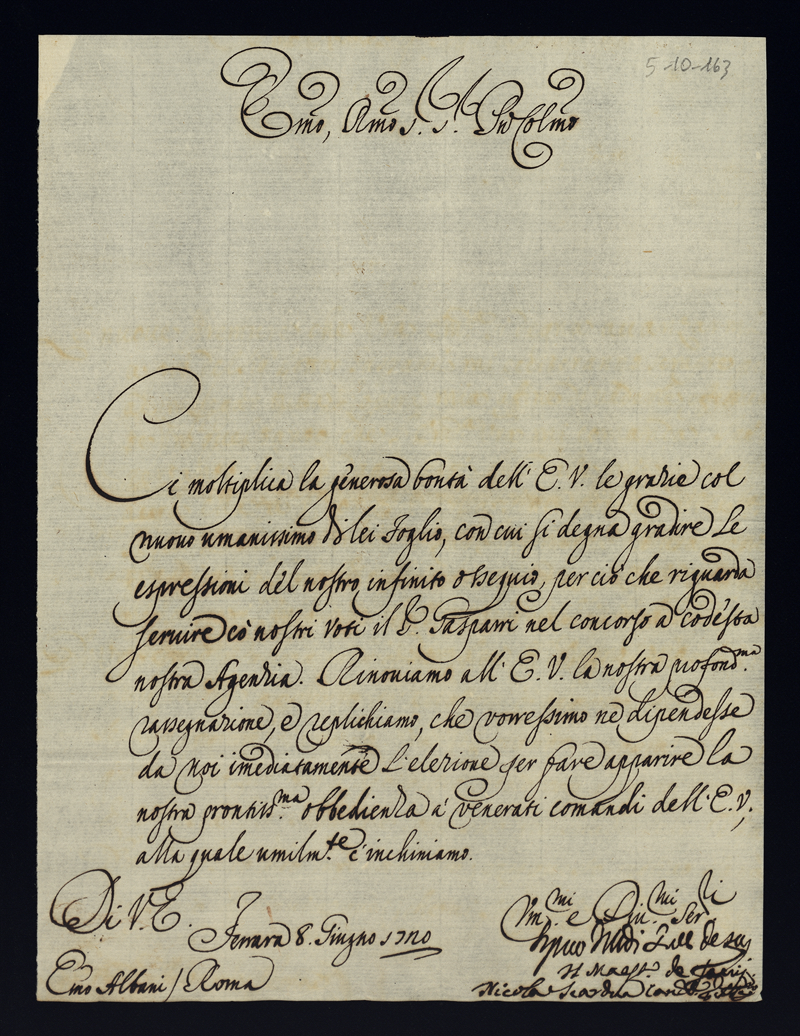 5-10-163
Emo, Rmo S.r S.r Prõ Colmo
Ci moltiplica la generosa bontà dell' E. V. le grazie col
nuovo umanissimo di lei Foglio, con cui si degna gradire le
espressioni del nostro infinito ossequio, per ciò che riguarda
servire co' nostri voti il D. Gasparri nel concorso a codesta
nostra Agenzia. Rinoviamo all' E. V. la nostra profond.ma
rassegnazione, e replichiamo, che vorressimo ne dipendesse
da noi imediatamente l'elezione per fare apparire la
nostra prontiss.ma obbedienza a' venerati comandi dell' E. V.,
alla quale umilm.te c'inchiniamo.
Di V. E.
Ferrara 8. Giugno 1720
Vm.mi e Diu.mi Ser.ri
Emo Albani / Roma
Il Maest.o de
Nicola